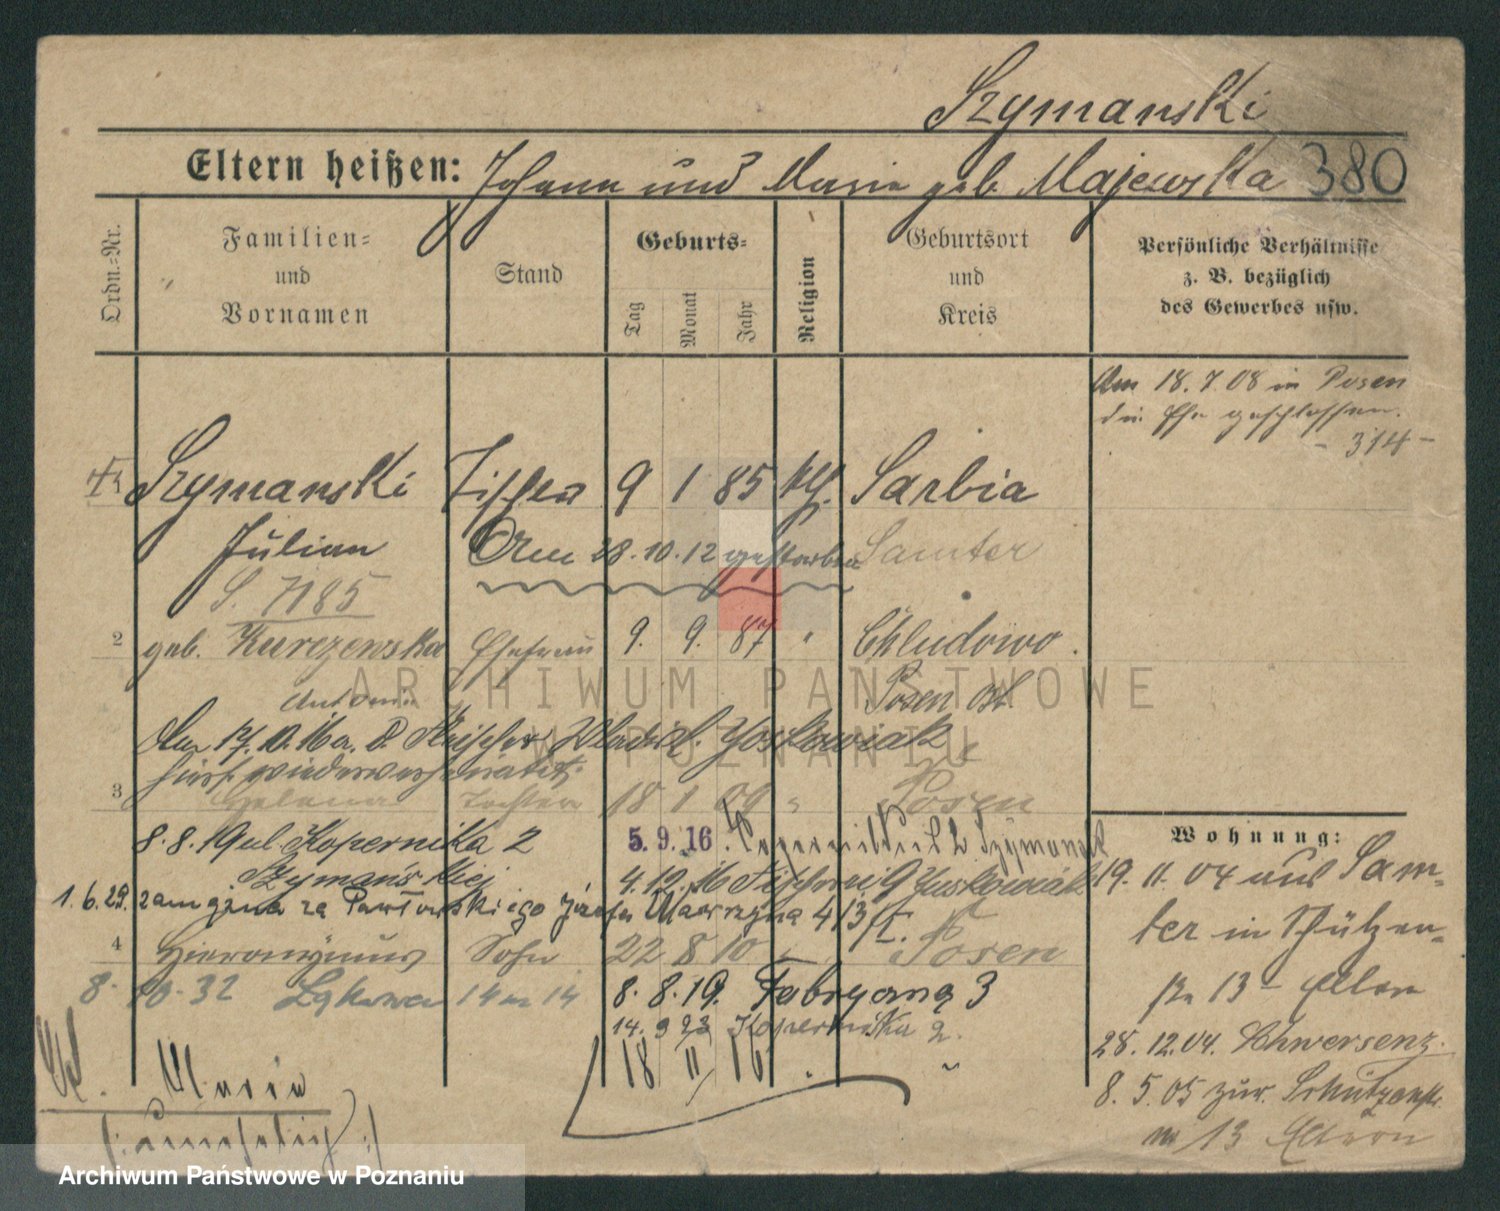 Szymanski
Eltern heißen: Johann und Maria geb. Majewska 380
Ordn.-Nr.
Familien-
und
Vornamen
Stand
Geburts-
Tag
Monat
Jahr
Religion
Geburtsort
und
Kreis
Persönliche Verhältnisse
z. B. bezüglich
des Gewerbes usw.
Am 18.7.08 in Posen
die Ehe geschlossen.
- 314 -
Szymanski Tischler 9 1 85 kth. Sarbia
Julian Am 28.10.12 gestorben Samter
S. 7185
2 geb. Kurczewska Ehefrau 9. 9. 87 " Chludowo.
Antonie Posen Ost
Am 17. 10. 16 a. d. Tischler Wladisl. Joskowiak
hier wiederverheiratet.
3 Helena Tochter 18 1 09 " Posen
8.8.19 ul. Kopernika 2 5. 9. 16.
Szymańskiej 4.12.16
1.6.29. zamężna za Pawłowskiego Józefa Wawrzyna 4/3
4 Hieronymus Sohn 22 8 10 " Posen
8. 10. 32 Łąkowa 14 m 14 8. 8. 19. Fabryczna 3
14. 9 23 Kopernika 2.
18 11 16 " "
Maria
/: unehelich :/
Wohnung:
19. 11. 04 aus Sam-
ter in Schützen-
str 13 - Eltern
28. 12. 04. Schwersenz.
8. 5. 05 zur. Schützenstr.
13 Eltern
ARCHIWUM PAŃSTWOWE
W POZNANIU
Archiwum Państwowe w Poznaniu